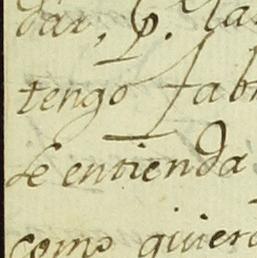 dar, p. las
tengo fabr
se entienda
como quiera